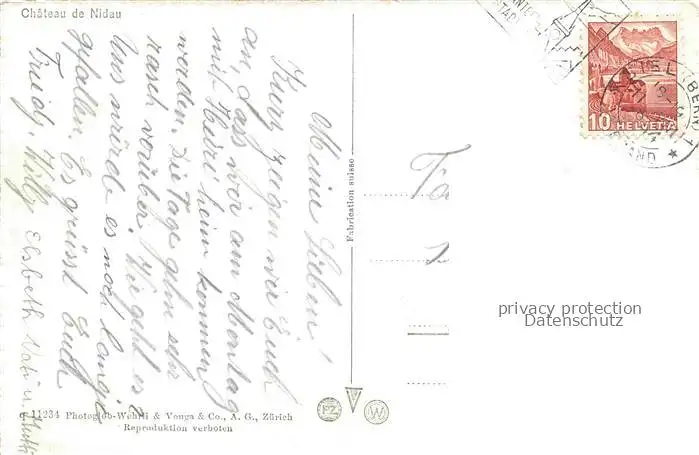 Château de Nidau
Meine Lieben!
Kurz zeigen wir Euch
an, dass wir am Montag
mit Heiri heim kommen
werden. Die Tage gehen sehr
rasch vorüber. Wie geht es?
Uns würde es noch länger
gefallen. Es grüsst Euch
Friedy, Willy Elsbeth Vati u. Mutti
Fabrication suisse
10 HELVETIA
BIEL (BERN)
privacy protection
Datenschutz
FZ
W
11234 Photoglob-Wehrli & Vouga & Co., A. G., Zürich
Reproduktion verboten